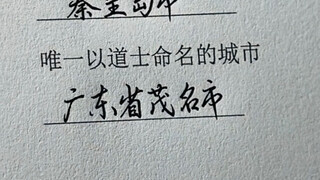 秦皇岛市
唯一以道士命名的城市
广东省茂名市